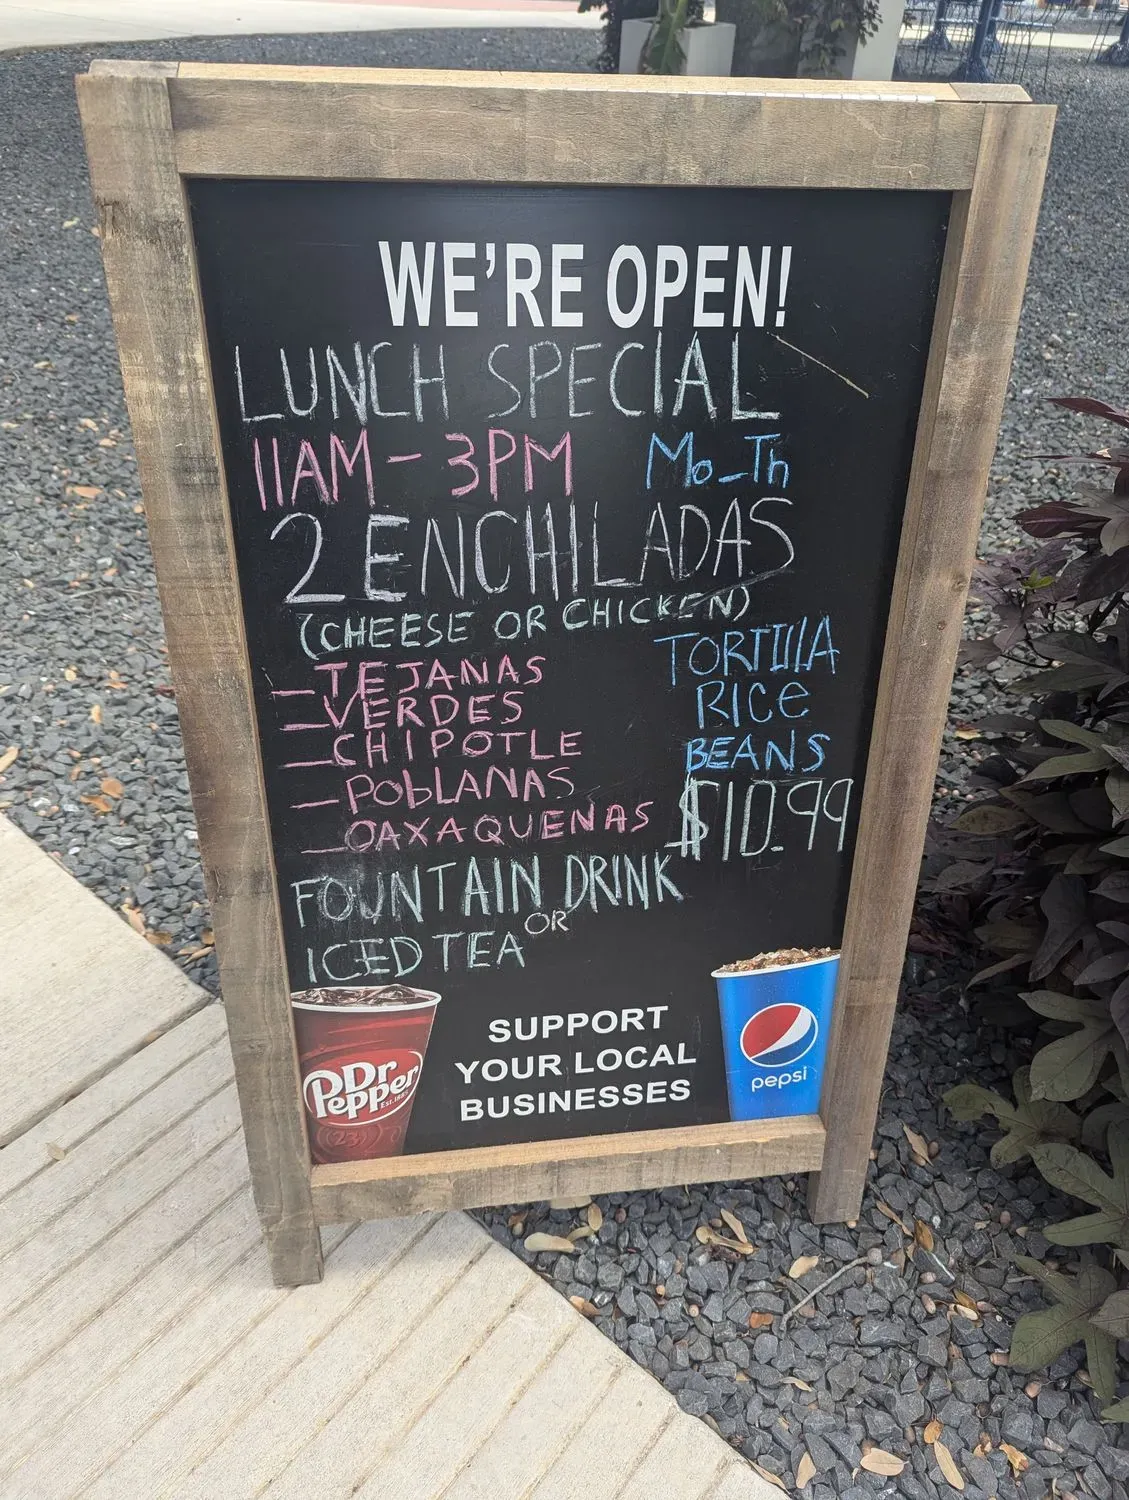 WE'RE OPEN!
LUNCH SPECIAL
11AM - 3PM Mo-Th
2 ENCHILADAS
(CHEESE OR CHICKEN)
- TEJANAS
- VERDES
- CHIPOTLE
- POBLANAS
- OAXAQUENAS
TORTILLA
RICE
BEANS
$10.99
FOUNTAIN DRINK
OR
ICED TEA
SUPPORT
YOUR LOCAL
BUSINESSES
Dr
Pepper
EST. 1885
23
pepsi